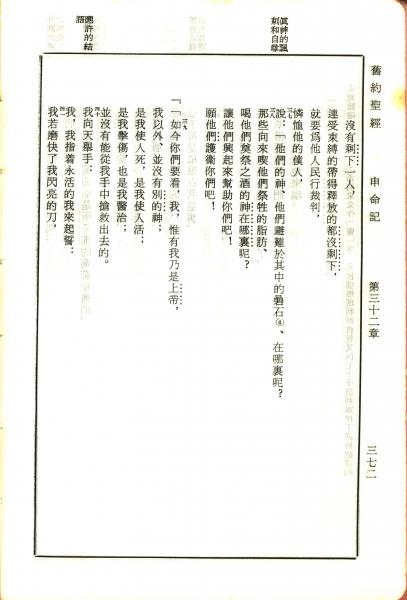 舊約聖經　申命記　第三十二章　三七二
沒有剩下一人，
連受束縛的帶得釋放的都沒剩下，
就要爲他人民行裁判，
憐恤他的僕人，
說：『他們的神、他們避難於其中的磐石④、在哪裏呢？
那些向來喫他們祭牲的脂肪、
喝他們奠祭之酒的神在哪裏呢？
讓他們興起來幫助你們吧！
願他們護衛你們吧！
『「如今你們要看，我，惟有我乃是上帝，
我以外，並沒有別的神；
是我使人死，是我使人活；
是我擊傷，也是我醫治；
並沒有能從我手中搶救出去的。
我向天舉手：
我，我指着永活的我來起誓：
我若磨快了我閃亮的刀，
眞神的諷
刺和自尊
應許的結
語